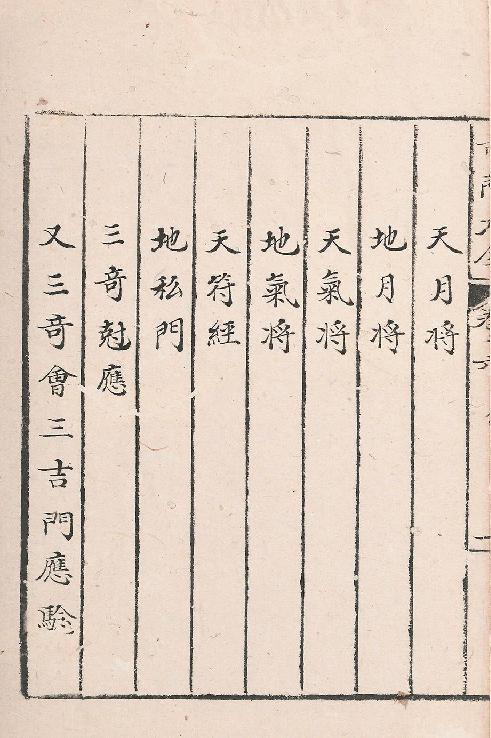 天月将
地月将
天氣将
地氣将
天符經
地私門
三竒尅應
又三竒會三吉門應騐